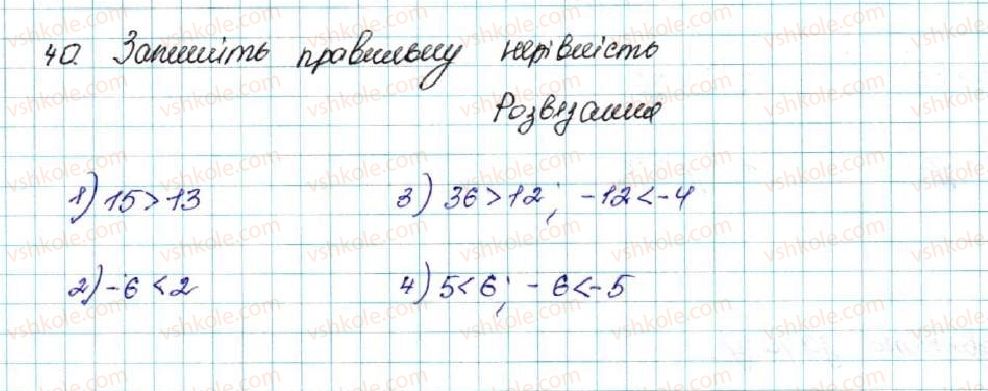 40. Запишіть правильну нерівність
Розвязання
1) 15 > 13
3) 36 > 12; -12 < -4
2) -6 < 2
4) 5 < 6; -6 < -5